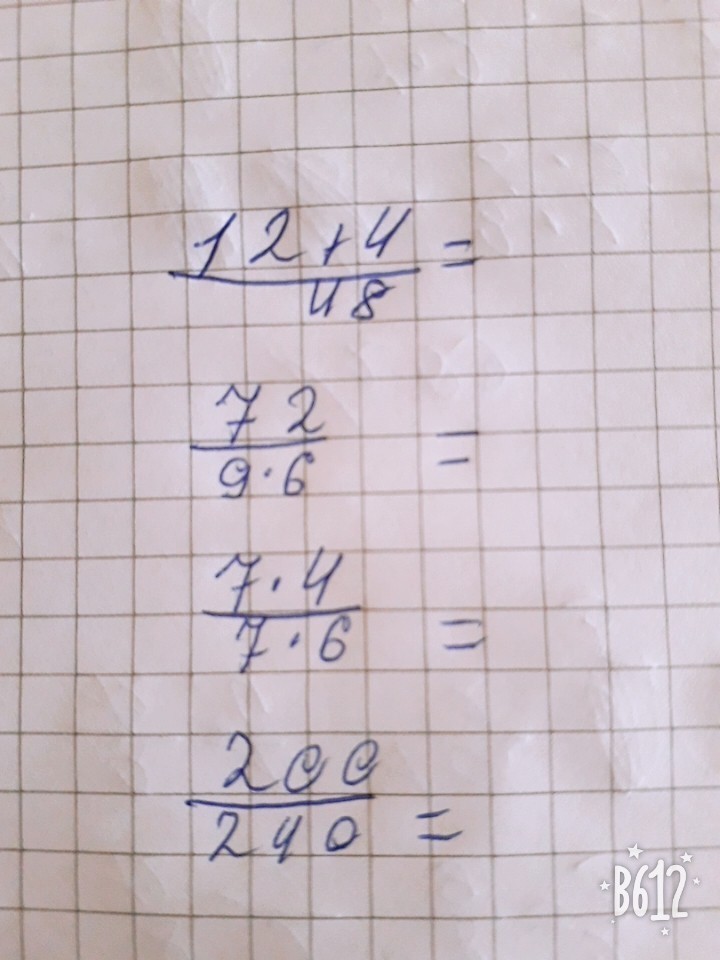 12+4/48=
72/9·6 =
7·4/7·6 =
200/240 =
B612